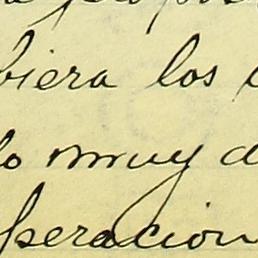 biera los
lo muy d
peracion